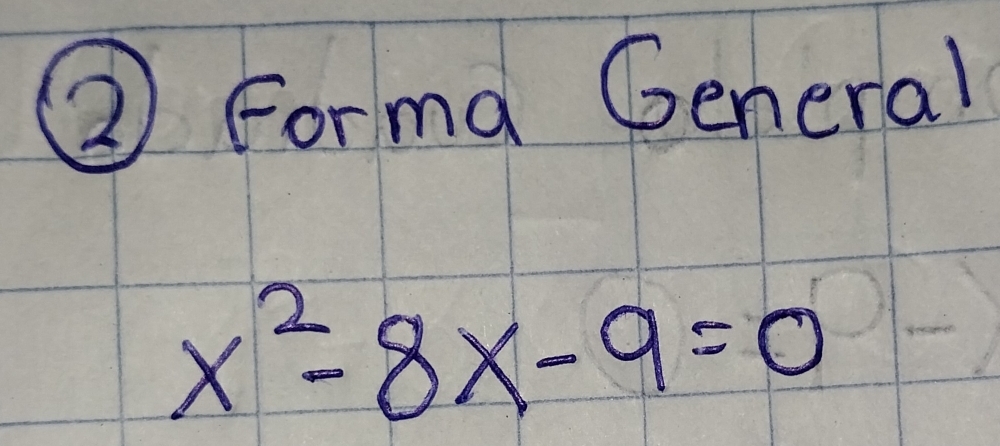 ② Forma General
x² - 8x - 9 = 0